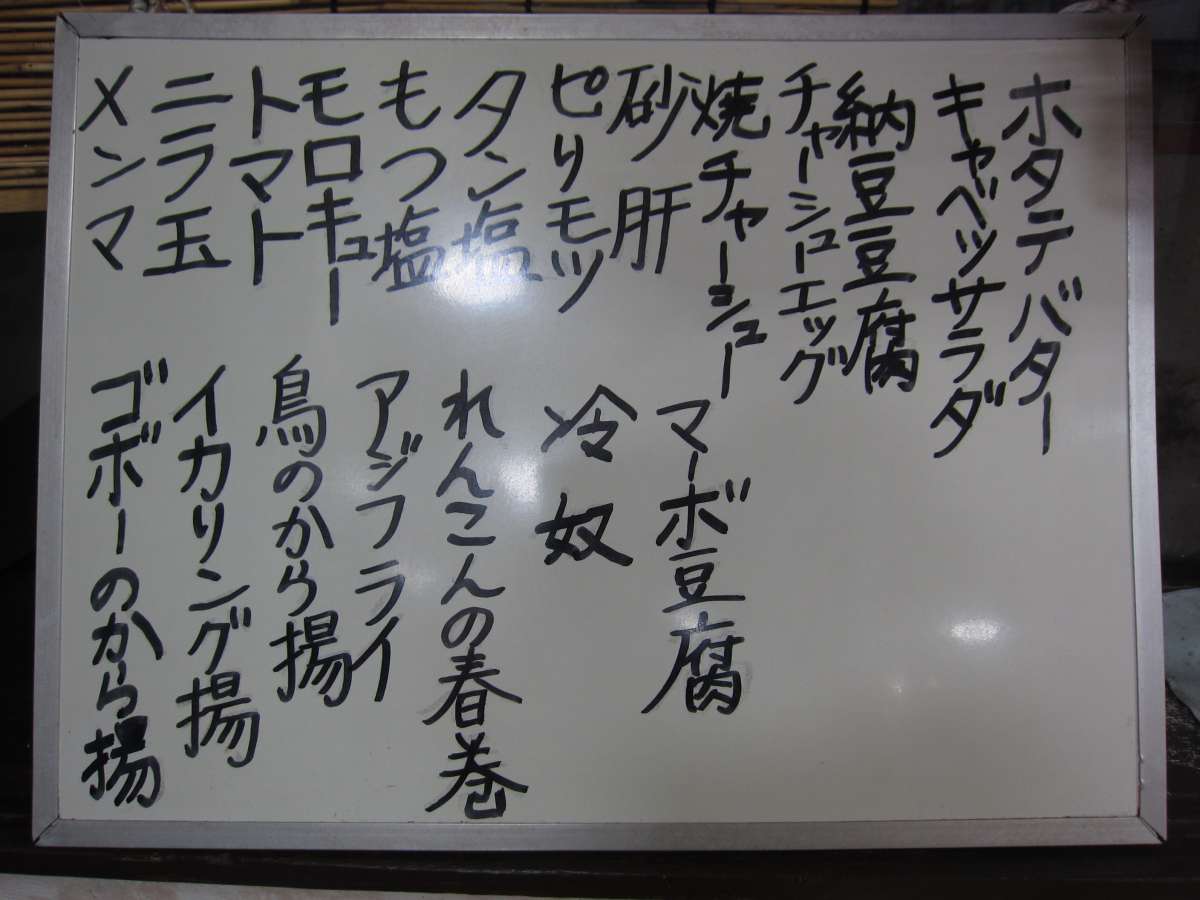 ホタテバター
キャベツサラダ
納豆豆腐
チャーシューエッグ
焼チャーシュー
砂肝
ピリモツ
タン塩
もつ塩
モロキュー
トマト
ニラ玉
メンマ
マーボ豆腐
冷奴
れんこんの春巻
アジフライ
鳥のから揚
イカリング揚
ゴボーのから揚